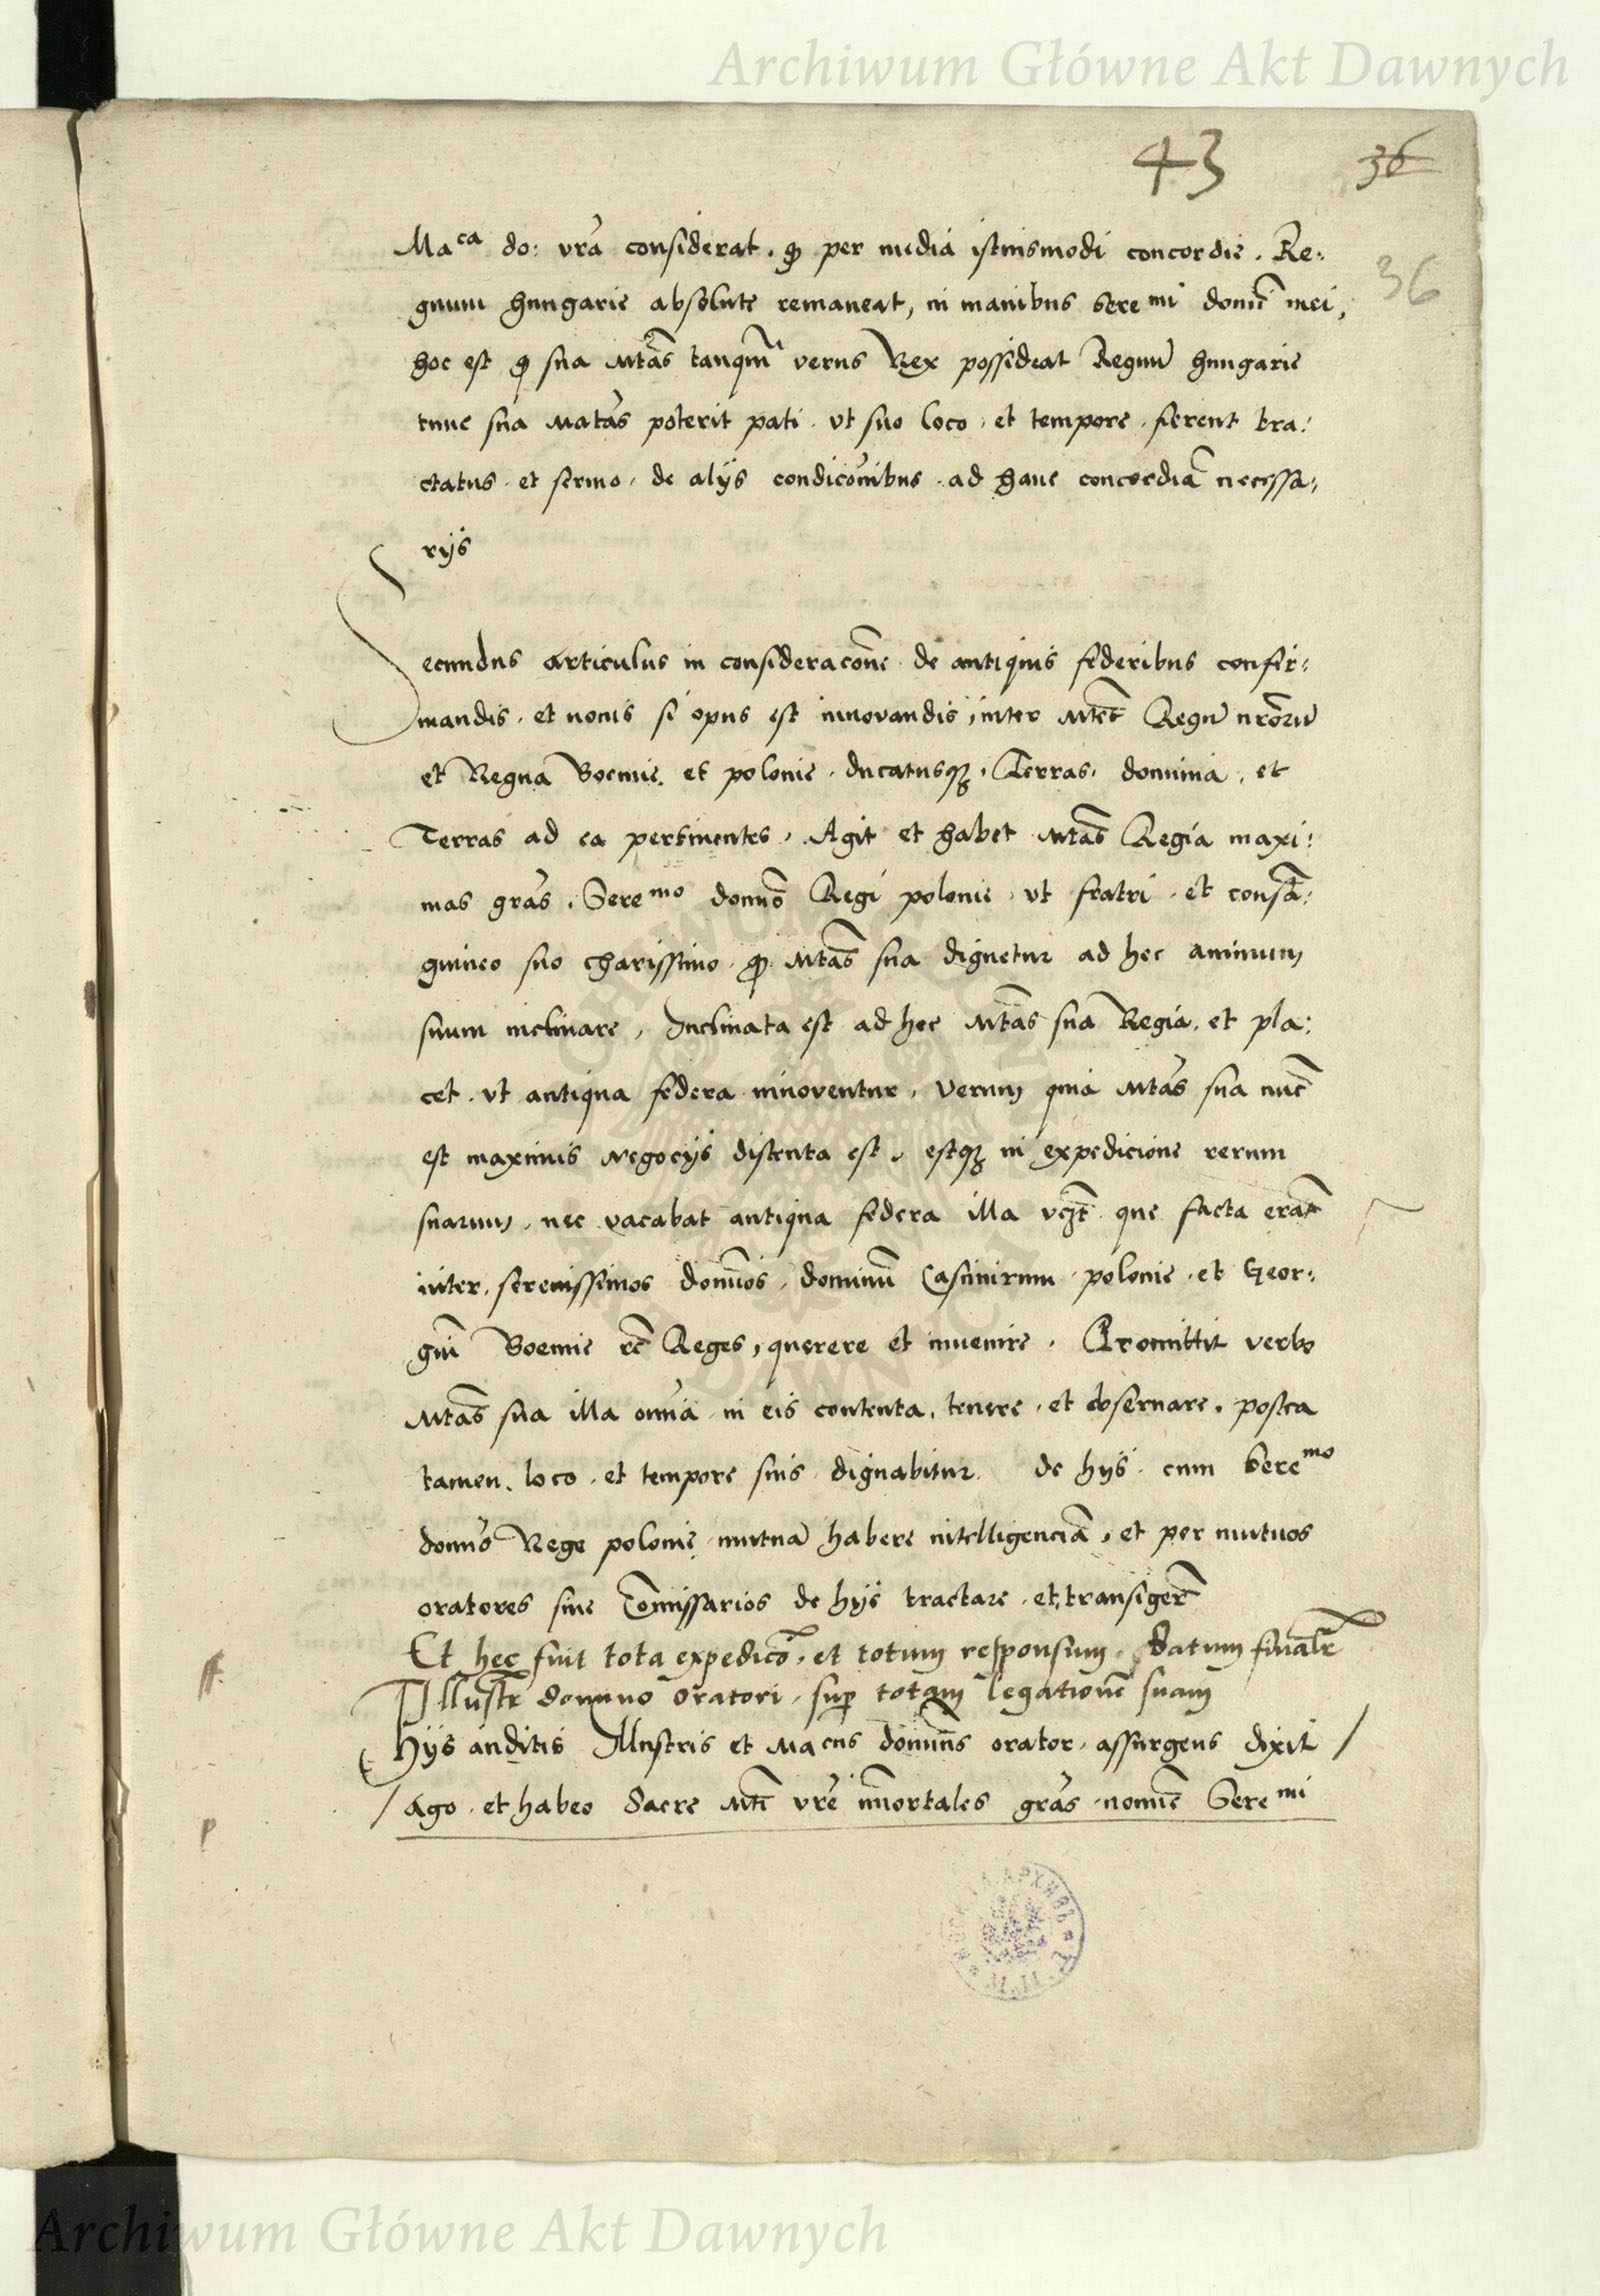 Archiwum Główne Akt Dawnych
43 36
36
Ma^ca do: vrã considerat. qp per media istiusmodi concordie. Re:
gnum hungarie absolute remaneat, in manibus Sere^mi domĩ mei,
hoc est qp sua Mtãs tanqm̃ verus Rex possideat Regnũ hungarie
tunc sua Matãs poterit pati. vt suo loco. et tempore. fierent tra:
ctatus. et sermo. de alijs condicõnibus. ad hanc concordiã necessa:
rijs
Secundus articulus in consideracõne de antiquis federibus confir:
mandis. et nouis si opus est innovandis, inter Mtẽs Regũ nrõrũ
et Regna Boemie. et polonie. ducatusqz. Terras. dominia. et
Terras ad ea pertinentes. Agit et habet Mtãs Regia maxi:
mas grãs. Sere^mo domõ Regi polonie. vt fratri. et consã:
guineo suo charissimo. qp Mtãs sua dignetur ad hec animum
suum inclinare, Inclinata est ad hec Mtãs sua Regia. et pla:
cet. vt antiqua federa innoventur, verum quia Mtãs sua nũc
est maximis negocijs distenta est, estqz in expedicione rerum
suarum, nec vacabat antiqua federa illa vczt que facta erãt
inter. serenissimos domños, dominũ Casimirum polonie. et Geor:
giũ Boemie etc̃ Reges, querere et inuenire. Promittit verbo
Mtãs sua illa omĩa in eis contenta. tenere. et obseruare. postea
tamen. loco. et tempore suis dignabitur. de hijs. cum Sere^mo
domño Rege polonie mutuã habere intelligenciã, et per mutuos
oratores siue Cõmissarios de hijs tractare. et transigerẽ
Et hec fuit tota expedicõ. et totum responsum. Datum finalr̃
Illustr̃ domino oratori. sup totam legationẽ suam
Hijs auditis Illustris et Ma^cus domiñs orator. assurgens dixit /
/ Ago. et habeo Sacre Mti vrẽ im̃ortales grãs. nomĩe Sere^mi
ff.
p
Archiwum Główne Akt Dawnych